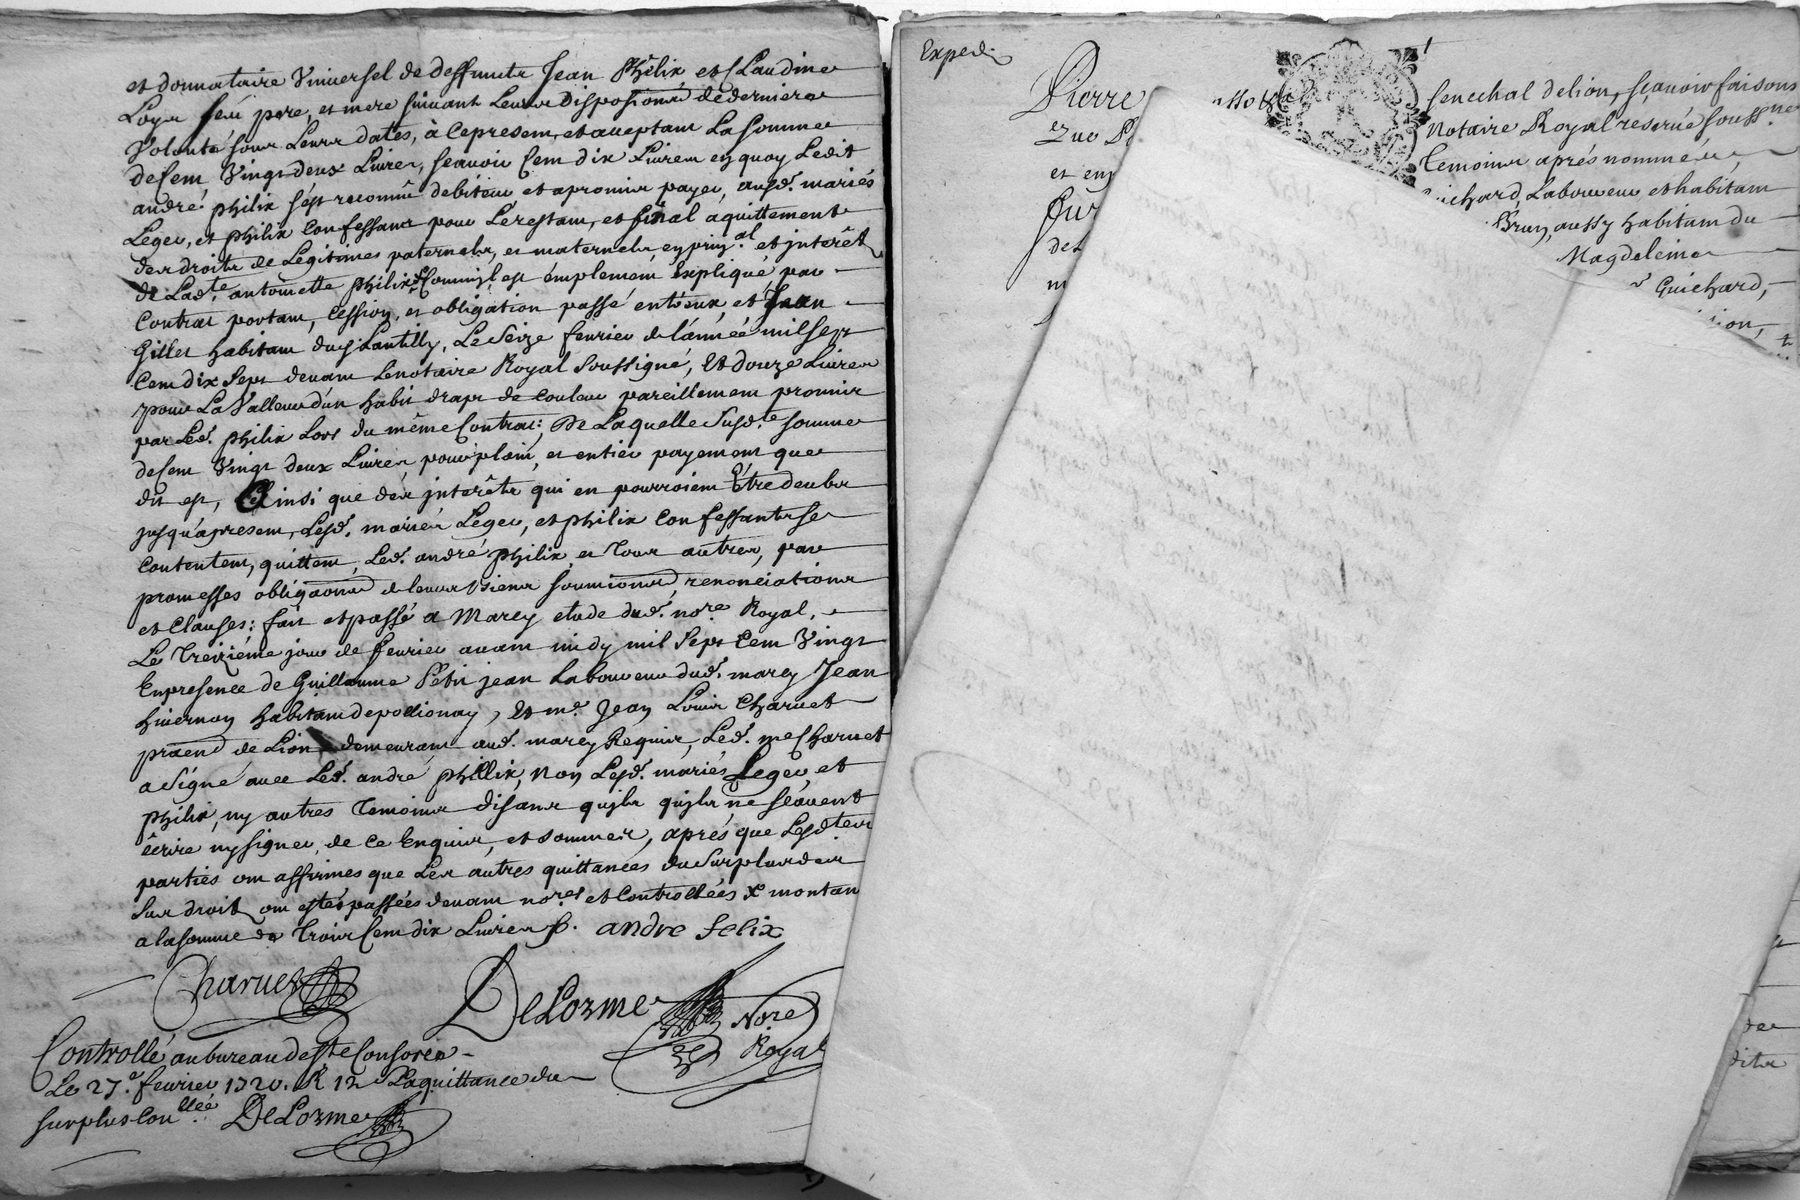 et donnataire Vniuersel de deffuncts Jean Philix et Claudine
Loyer ses pere, et mere suiuant Leurs Disposiōns de derniere
Volonté sous Leurs dates, à ce present, et acceptant La somme
de Cent Vingt deux Liures, scauoir Cent dix Liures en quoy Ledit
andré philix s'est reconnû debiteur et a promis payer, ausd. mariés
Leger, et philix Confessans pour Le restant, et final aquittement
des droits de Legitimes paternels, et maternels en prinp.al et interêt
de Lad.te antoinette philix Comm'il est emplement Expliqué par
Contrat portant, Cession, et obligation passé entr'eux, et Jean
Gillet habitant dud. Lantilly, Le seize feurier de l'année mil sept
Cent dix sept deuant Le notaire Royal soussigné, Et douze Liures
pour La Valleur d'un habit drapt de Couleur pareillement promis
par Led. philix Lors du même Contrat; De Laquelle susd.te somme
de Cent Vingt deux Liures, pour plein, et entier payement que
dit est, Ainsi que des interêts qui en pourroient Être deubs
jusqu'apresent, Lesd. mariés Leger, et philix Confessants se
Contentent, quittent, Led. andré philix et Tous autres, par
promesses obligaōns de leurs biens soumiōns, renonciations
et Clauses: fait et passé a Marcy etude dud. no.re Royal,
Le Treizième jour de feurier auant midy mil Sept Cent Vingt
En presence de Guillaume Petit jean Laboureur dud. marcy Jean
hiuernon habitant de pollionay, Et m.e Jean Louis Charuet
prat̄ de Lion demeurant aud. marcy Requis, Led. me Charuet
a Signé auec Led. andré phillix, Non Lesd. mariés Leger, et
philix, ny autres Temoins disans qu'jls qu'jls ne sçauent
êcrire ny signer, de ce Enquis, et sommés, aprés que Lesd.tes
parties ont affirmés que Les autres quittances du Surplus des
Sus droits ont estés passées deuant no.res et Controllées & montan
a la somme de Trois Cent dix Liures. andre felix
Charuet
DeLorme Nore
Royal
Controllé au bureau de Ste Consorce
Le 27.e feurier 1720. R 12 s La quittance du
surplus Con.llée DeLorme
Exped.
Pierre
senechal de lion, sçauoir faisons
Notaire Royal reserué souss.né
Temoins aprés nommés,
et en
Guichard, Laboureur et habitant
Brun, aussy habitant du
de L
Magdeleine
Guichard,